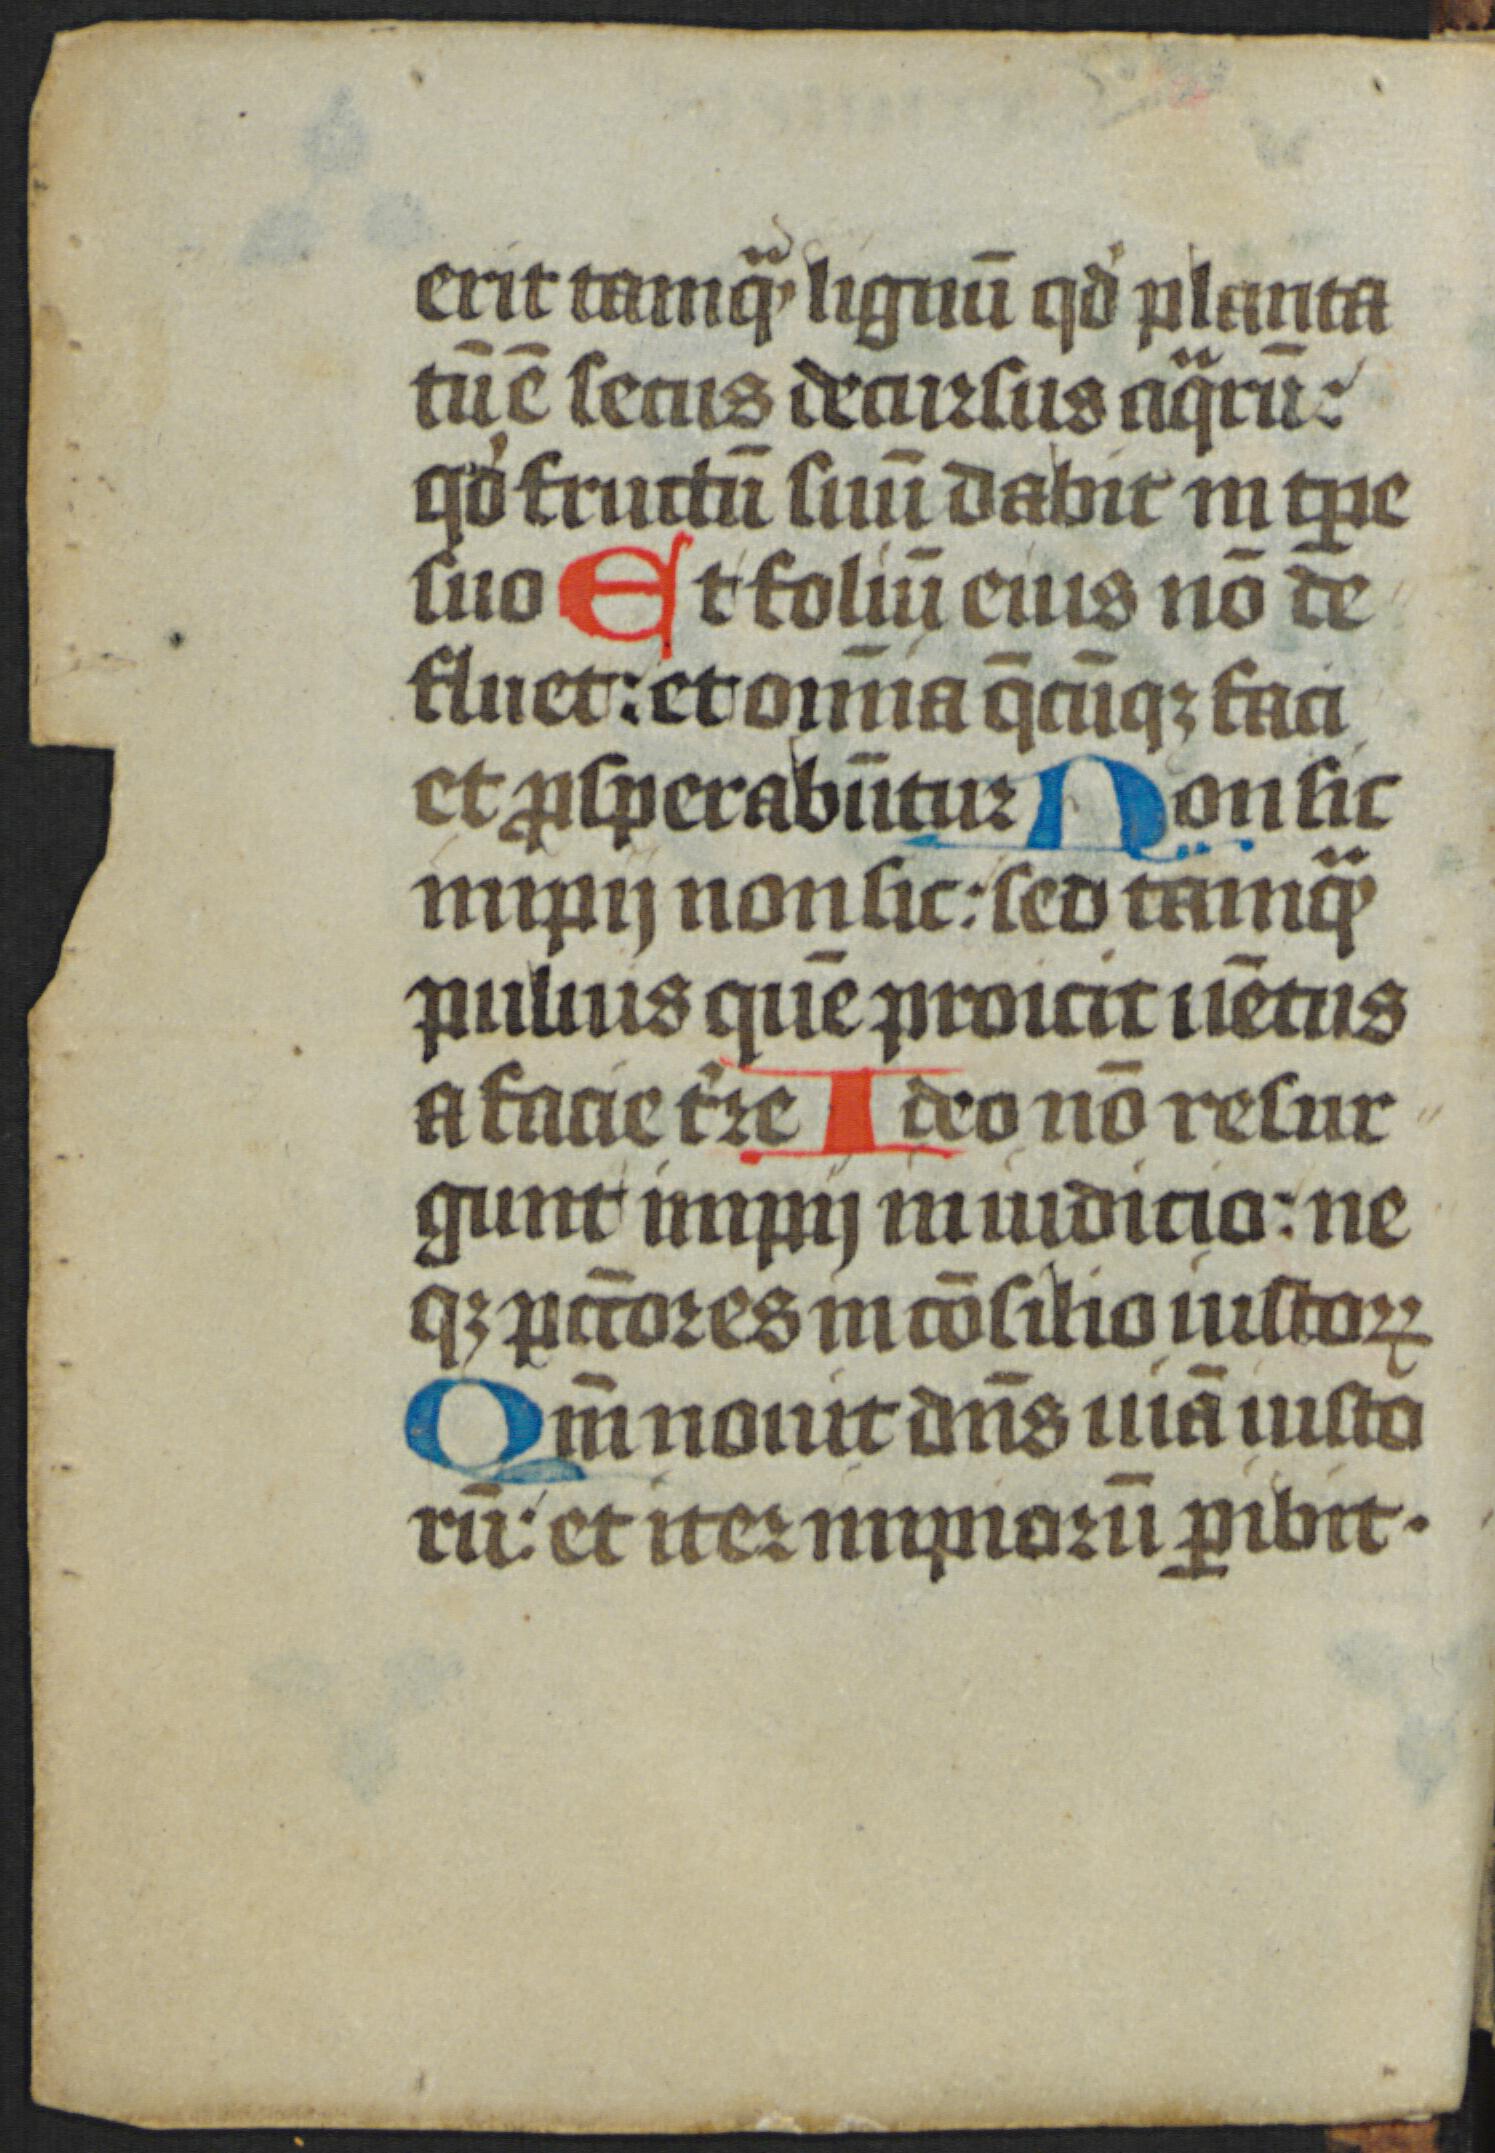 erit tamqͣ lignū qd' planta
tū ē secus decursus aqͣrū:
qd' fructū suū dabit in tp̄e
suo Et foliū eius nō de
fluet: et om̄ia q̄cūqꝫ faci
et ꝓsperabūtur Non sic
impij non sic: sed tamqͣ
puluis quē proicit uētus
a facie t're Ideo nō resur
gunt impij in iudicio: ne
qꝫ pct̄ores in cōsilio iustoꝝ
Qm̄ nouit dn̄s uiā iusto
rū: et iter impiorū ꝑibit.